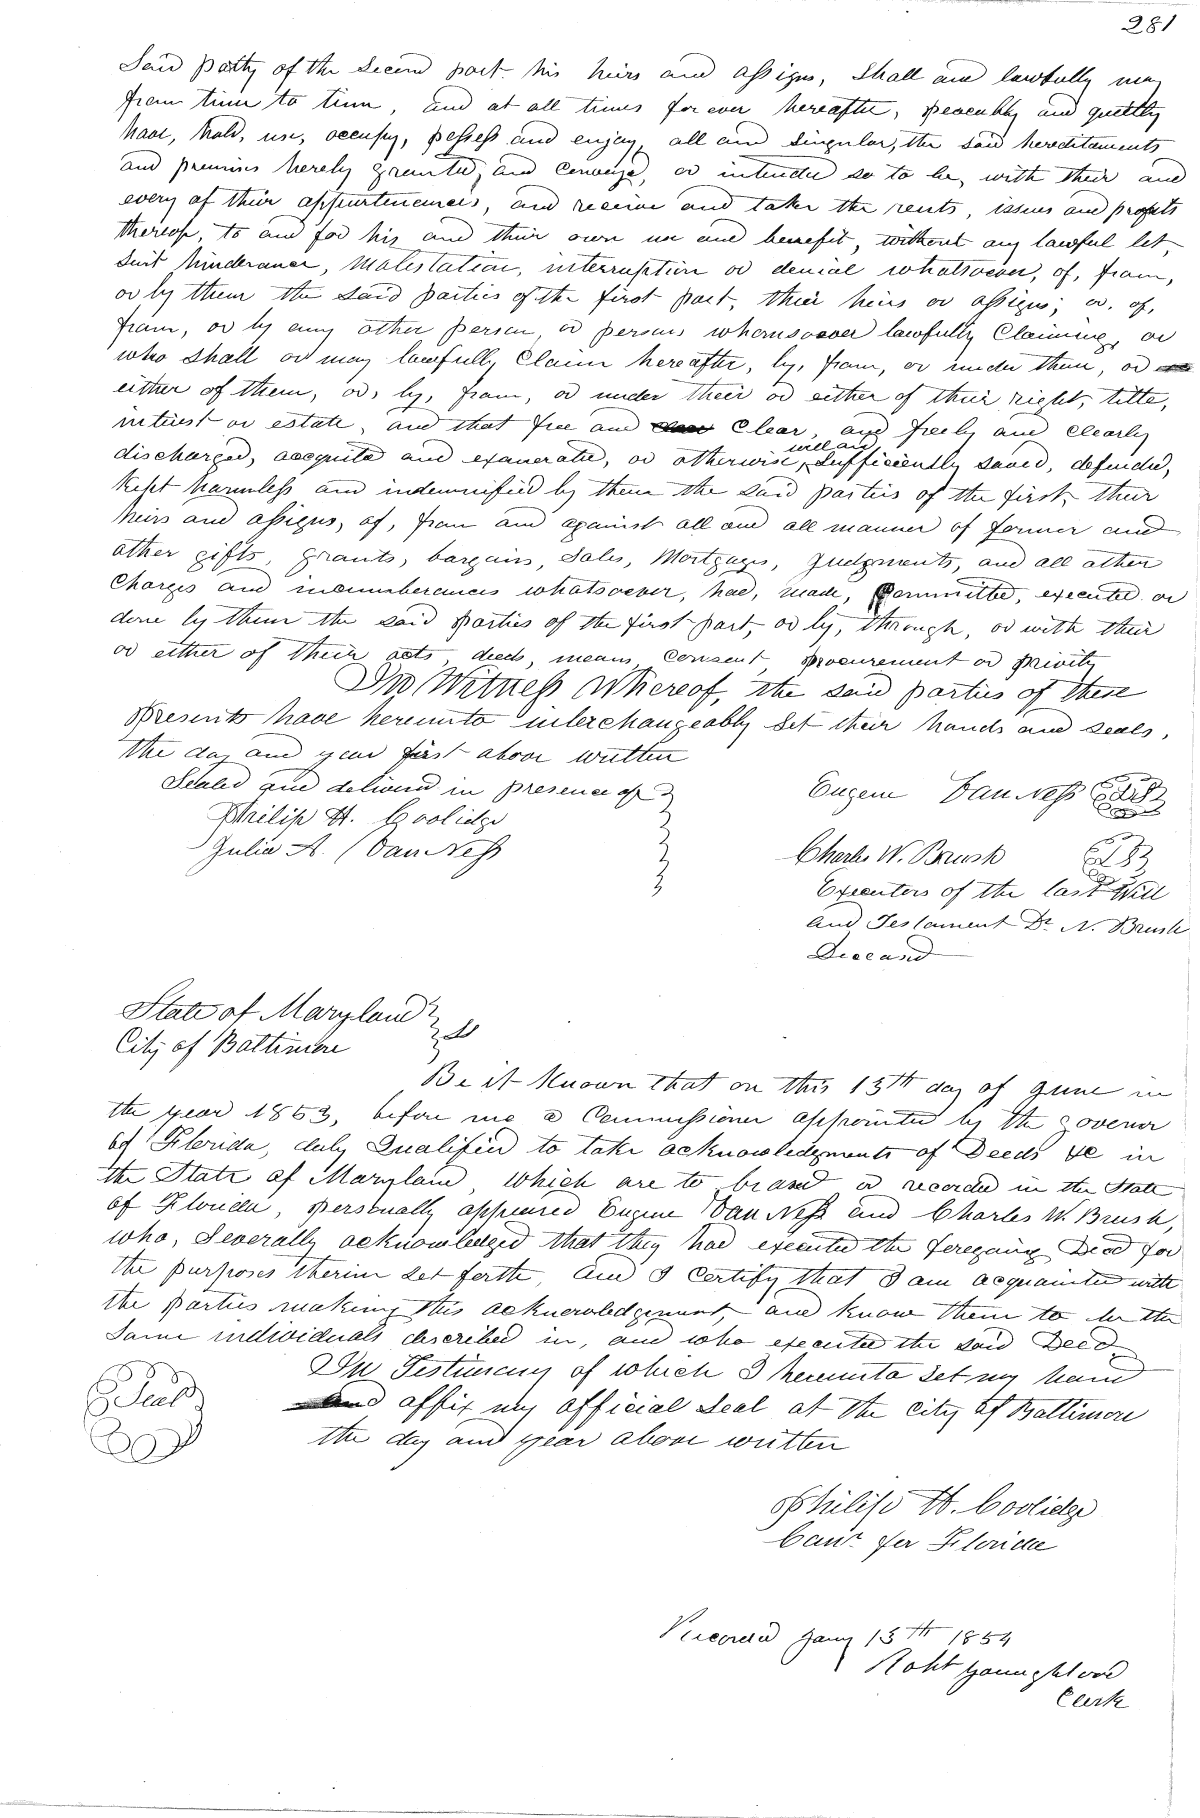 281
Said party of the Second part his heirs and assigns, Shall and lawfully may
from time to time, and at all times forever hereafter, peaceably and quietly
have, hold, use, occupy, possess and enjoy, all and Singular, the said hereditaments
and premises hereby granted, and Conveyed, or intended so to be, with their and
every of their appurtenances, and receive and take the rents, issues and profits
thereof, to and for his and their own use and benefit, without any lawful let,
Suit hinderance, Molestation, interruption or denial whatsoever, of, from,
or by them the Said parties of the first part, their heirs or assigns; or, of,
from, or by any other person or persons whomsoever lawfully Claiming, or
who shall or may lawfully Claim hereafter, by, from, or under them, or
either of them, or, by, from, or under their or either of their right, title,
intrest or estate, and that free and Clear, and freely and clearly
discharged, acequited and exanerated, or otherwise, well and Sufficiently saved, defended,
Kept harmless and indemnified by them the said parties of the first, their
heirs and assigns, of, from and against all and all manner of former and
other gifts, grants, bargains, Sales, Mortgages, Judgments, and all other
Charges and incumberances whatsoever, had, made, Committed, executed or
done by them the said parties of the first part, or by, through, or with their
or either of their acts, deeds, means, Consent, procurement or privity
In Witness Whereof, the said parties of these
Presents have hereunto interchangeably Set their hands and seals,
the day and year first above written
Sealed and delivered in presence of
Philip H. Coolidge
Julia A. Van Ness
Eugene Van Ness
Charles W. Brush
Executors of the last Will
and Testament Dr. N. Brush
Deceasd
State of Maryland
City of Baltimore
Be it Known that on this 13th day of June in
the year 1853, before me a Commissioner appointed by the Govenor
of Florida, duly Qualified to take acknowledgments of Deeds &c in
the State of Maryland, which are to be used or recorded in the State
of Florida, personally appeared Eugene Van Ness and Charles W. Brush,
who, Severally acknowledged that they had executed the foregoing Deed for
the purposes therein set forth, and I Certify that I am acquainted with
the parties making this acknowledgement, and know them to be the
Same individuals described in, and who executed the said Deed
In Testimony of which I hereunto set my hand
and affix my official Seal at the City of Baltimore
the day and year above written
Seal
Philip H. Coolidge
Comr for Florida
Recorded Jany 13th 1854
Robt Youngblood
Clerk